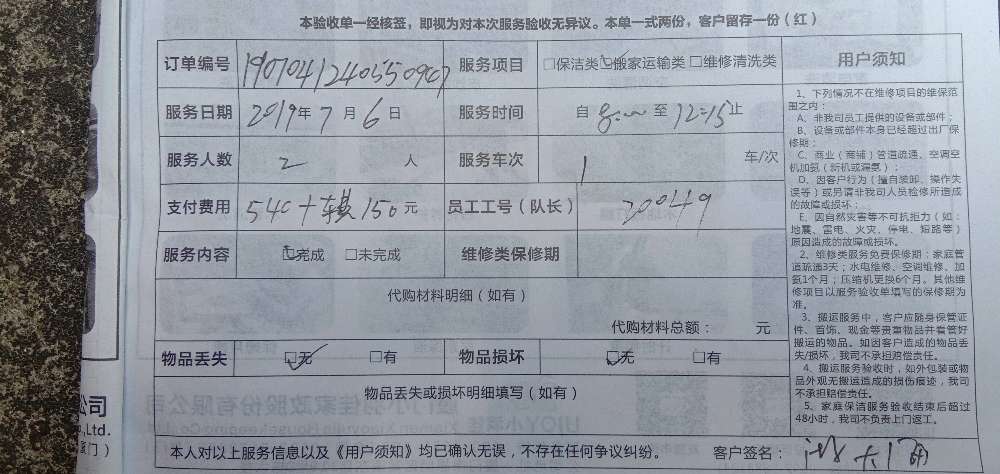 本验收单一经核签，即视为对本次服务验收无异议。本单一式两份，客户留存一份（红）
订单编号 服务项目 □保洁类 ☑搬家运输类 □维修清洗类
服务日期 2019年7月6日 服务时间 自 8:00 至 12:15 止
服务人数 2 人 服务车次 1 车/次
支付费用 540+ 150元 员工工号（队长） 200449
服务内容 ☑完成 □未完成 维修类保修期
代购材料明细（如有）
代购材料总额： 元
物品丢失 ☑无 □有 物品损坏 ☑无 □有
物品丢失或损坏明细填写（如有）
本人对以上服务信息以及《用户须知》均已确认无误，不存在任何争议纠纷。 客户签名：
用户须知
1、下列情况不在维修项目的维保范
围之内：
A、非我司员工提供的设备或部件；
B、设备或部件本身已经超过出厂保
修期；
C、商业（商铺）管道疏通、空调空
机加氨（新机或漏氨）；
D、因客户行为（擅自装卸、操作失
误等）或另请非我司人员检修所造成
的故障或损坏；
E、因自然灾害等不可抗拒力（如：
地震、雷电、火灾、停电、短路等）
原因造成的故障或损坏。
2、维修类服务免费保修期：家庭管
道疏通3天；水电维修、空调维修、加
氨1个月；压缩机更换6个月。其他维
修项目以服务验收单填写的保修期为
准。
3、搬运服务中，客户应随身保管证
件、首饰、现金等贵重物品并看管好
搬运的物品。如因客户造成的物品丢
失/损坏，我司不承担赔偿责任。
4、搬运服务验收时，如外包装或物
品外观无搬运造成的损伤痕迹，我司
不承担赔偿责任。
5、家庭保洁服务验收结束后超过
48小时，我司不负责上门返工。
公司
,Ltd.
厦门）